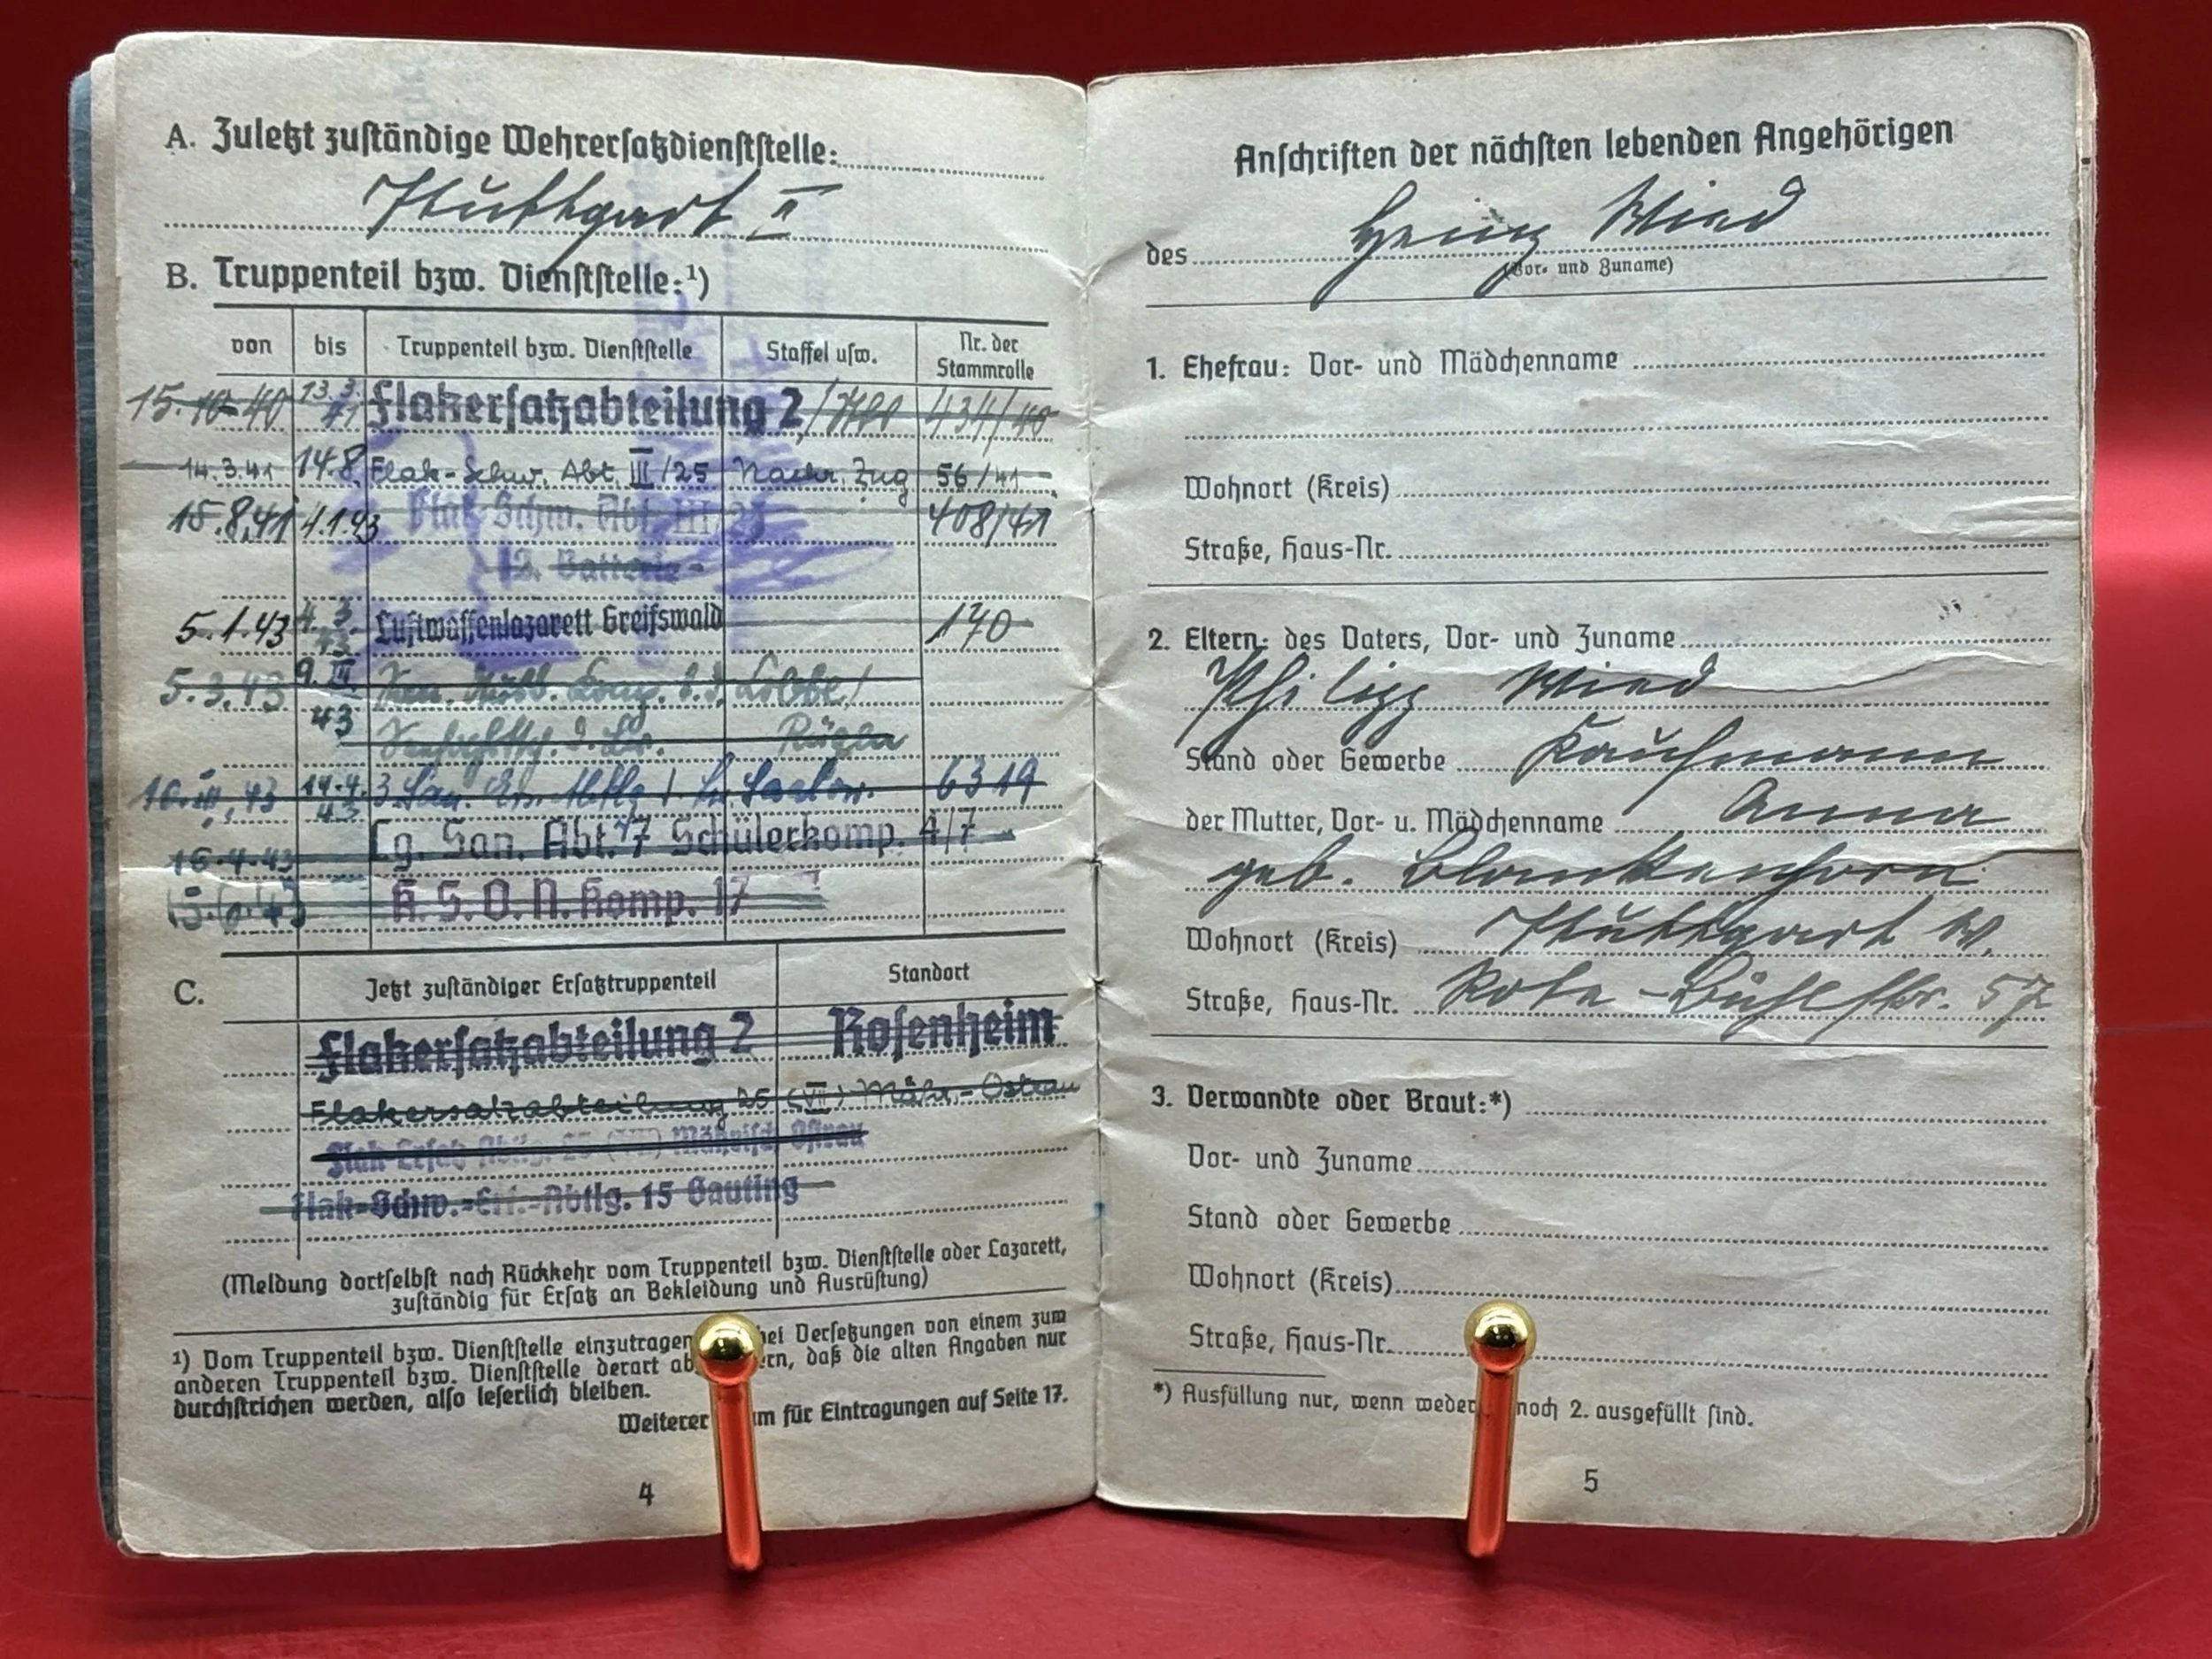 A. Zuletzt zuständige Wehrersatzdienststelle:
Stuttgart II
B. Truppenteil bzw. Dienststelle:¹)
von bis Truppenteil bzw. Dienststelle Staffel usw. Nr. der Stammrolle
15.10.40 13.3.41 Flakersatzabteilung 2 434/40
14.3.41 14.8. Flak-Schw. Abt. III/25 Nachr. Zug 56/41
15.8.41 4.1.43 Flak-Schw. Abt. III/25 408/41
12. Batterie
5.1.43 4.3.43 Luftwaffenlazarett Greifswald 170
5.3.43 9.III.43
Rügen
10.III.43 14.4.43 6319
16.4.43 Lg. San. Abt. 7 Schülerkomp. 4/7
K.S.O.N. Komp. 17
C. Jetzt zuständiger Ersatztruppenteil Standort
Flakersatzabteilung 2 Rosenheim
Flakersatzabteilung 25 (VII) Mähr.-Ostrau
Flak-Ersatz-Abtlg. 25 (VII) Mährisch Ostrau
Flak-Schw.-Ers.-Abtlg. 15 Gauting
(Meldung dortselbst nach Rückkehr vom Truppenteil bzw. Dienststelle oder Lazarett,
zuständig für Ersatz an Bekleidung und Ausrüstung)
¹) Vom Truppenteil bzw. Dienststelle einzutragen bei Versetzungen von einem zum
anderen Truppenteil bzw. Dienststelle derart ab ern, daß die alten Angaben nur
durchstrichen werden, also leserlich bleiben.
Weiterer m für Eintragungen auf Seite 17.
4
Anschriften der nächsten lebenden Angehörigen
des Heinz Wied
(Vor- und Zuname)
1. Ehefrau: Vor- und Mädchenname
Wohnort (Kreis)
Straße, Haus-Nr.
2. Eltern: des Vaters, Vor- und Zuname
Philipp Wied
Stand oder Gewerbe Kaufmann
der Mutter, Vor- u. Mädchenname Anna
geb. Blankenhorn
Wohnort (Kreis) Stuttgart W.
Straße, Haus-Nr. Rote-Bühlstr. 57
3. Verwandte oder Braut:*)
Vor- und Zuname
Stand oder Gewerbe
Wohnort (Kreis)
Straße, Haus-Nr.
*) Ausfüllung nur, wenn weder noch 2. ausgefüllt sind.
5